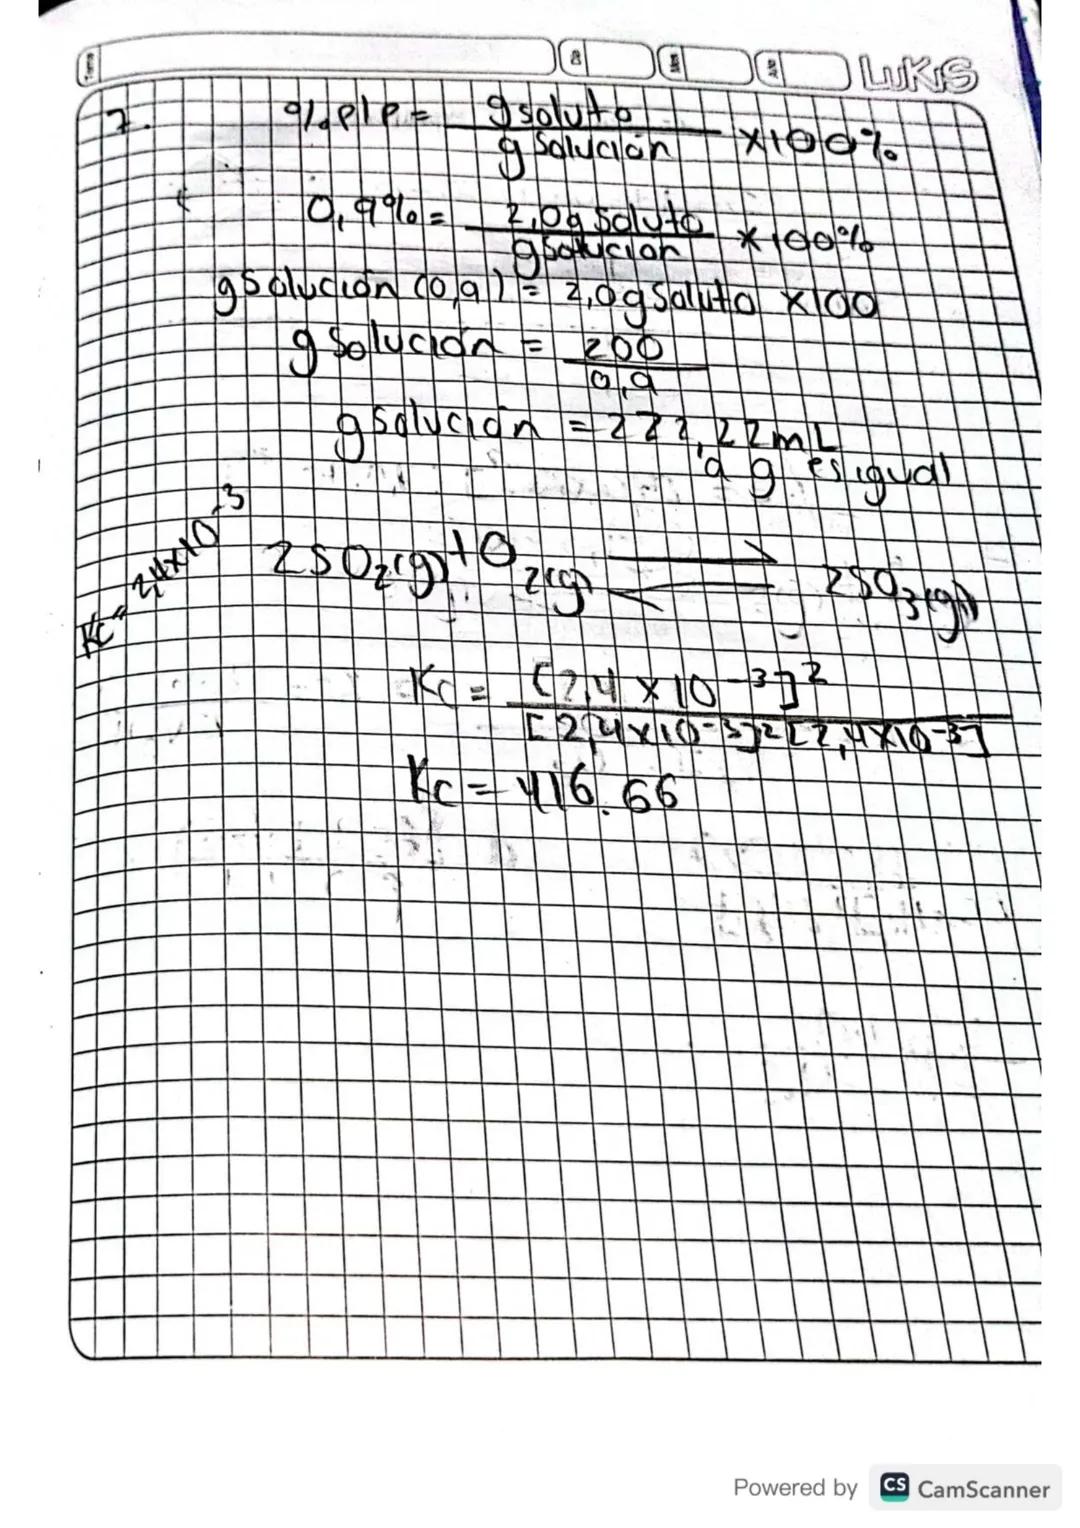 Tema
Día
Mes
Año
LUKIS
7. %p/p = g soluto / g Solución x100%
0,9% = 2,0g Soluto / g Solución x 100%
g Solución (0,9) = 2,0 g Soluto x100
g Solución = 200 / 0,9
g Solución = 222,22 mL
a g es igual
Kc = 2,4x10-3
2SO2(g) + O2(g) ⇌ 2SO3(g)
Kc = [2,4 x 10-3]2 / [2,4x10-3]2 [2,4x10-3]
Kc = 416.66
Powered by CS CamScanner